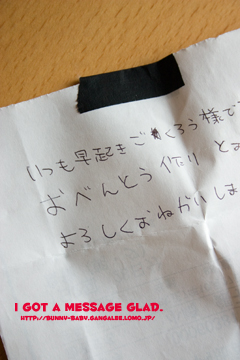 いつも早起きごくろう様で
おべんとう作り とa
よろしくおねがいしま
I GOT A MESSAGE GLAD.
HTTP://BUNNY-BABY.GANGALEE.LOMO.JP/